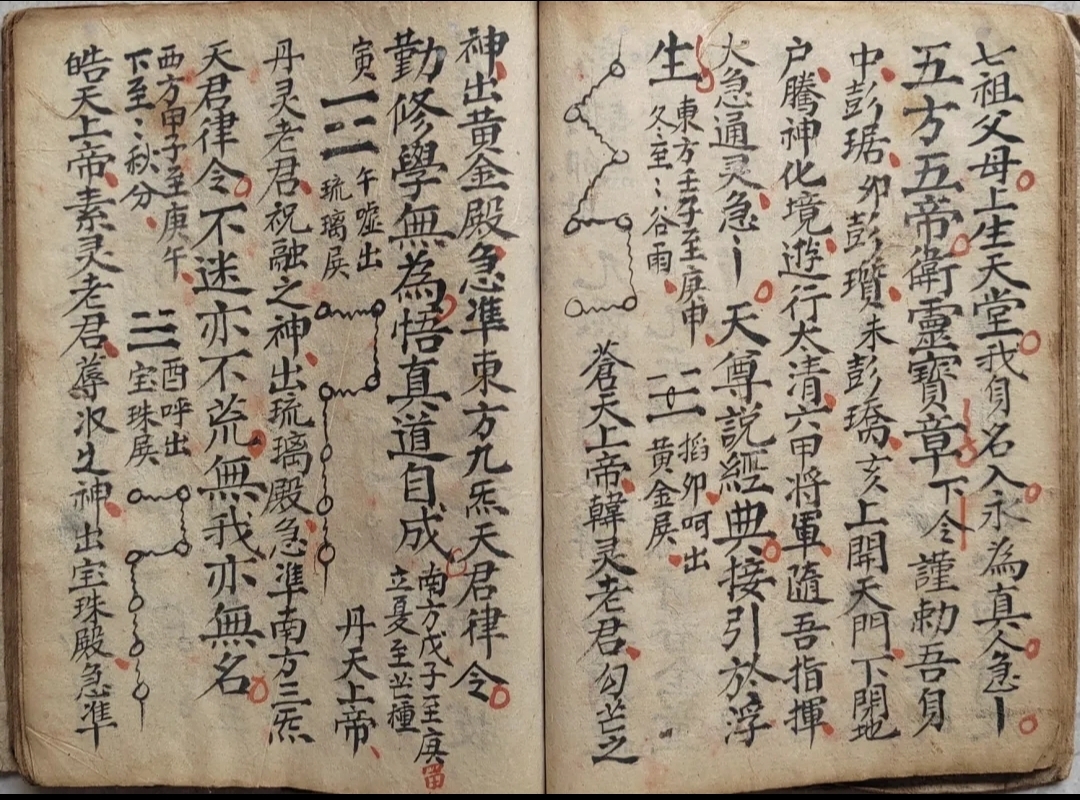 七祖父母上生天堂我身名入永為真人急〡
五方五帝衛靈寶章下令謹勅吾身
中彭琚卯彭瓚未彭瑀亥上開天門下閉地
户騰神化境遊行大清六甲将軍隨吾指揮
火急通灵急〡天尊説經典接引於浮
生
東方壬子至庚申
冬至〻谷雨
搯卯呵出
黄金㞐
蒼天上帝韓灵老君勾芒之
神出黄金殿急準東方九炁天君律令
勤修學無為悟真道自成
南方戊子至庚
立夏至芒種
寅
午嘘出
琉璃㞐
丹天上帝
丹灵老君祝融之神出琉璃殿急準南方三炁
天君律令不迷亦不荒無我亦無名
西方甲子至庚午
下至〻秋分
酉呼出
宝珠㞐
皓天上帝素灵老君蓐收之神出宝珠殿急準